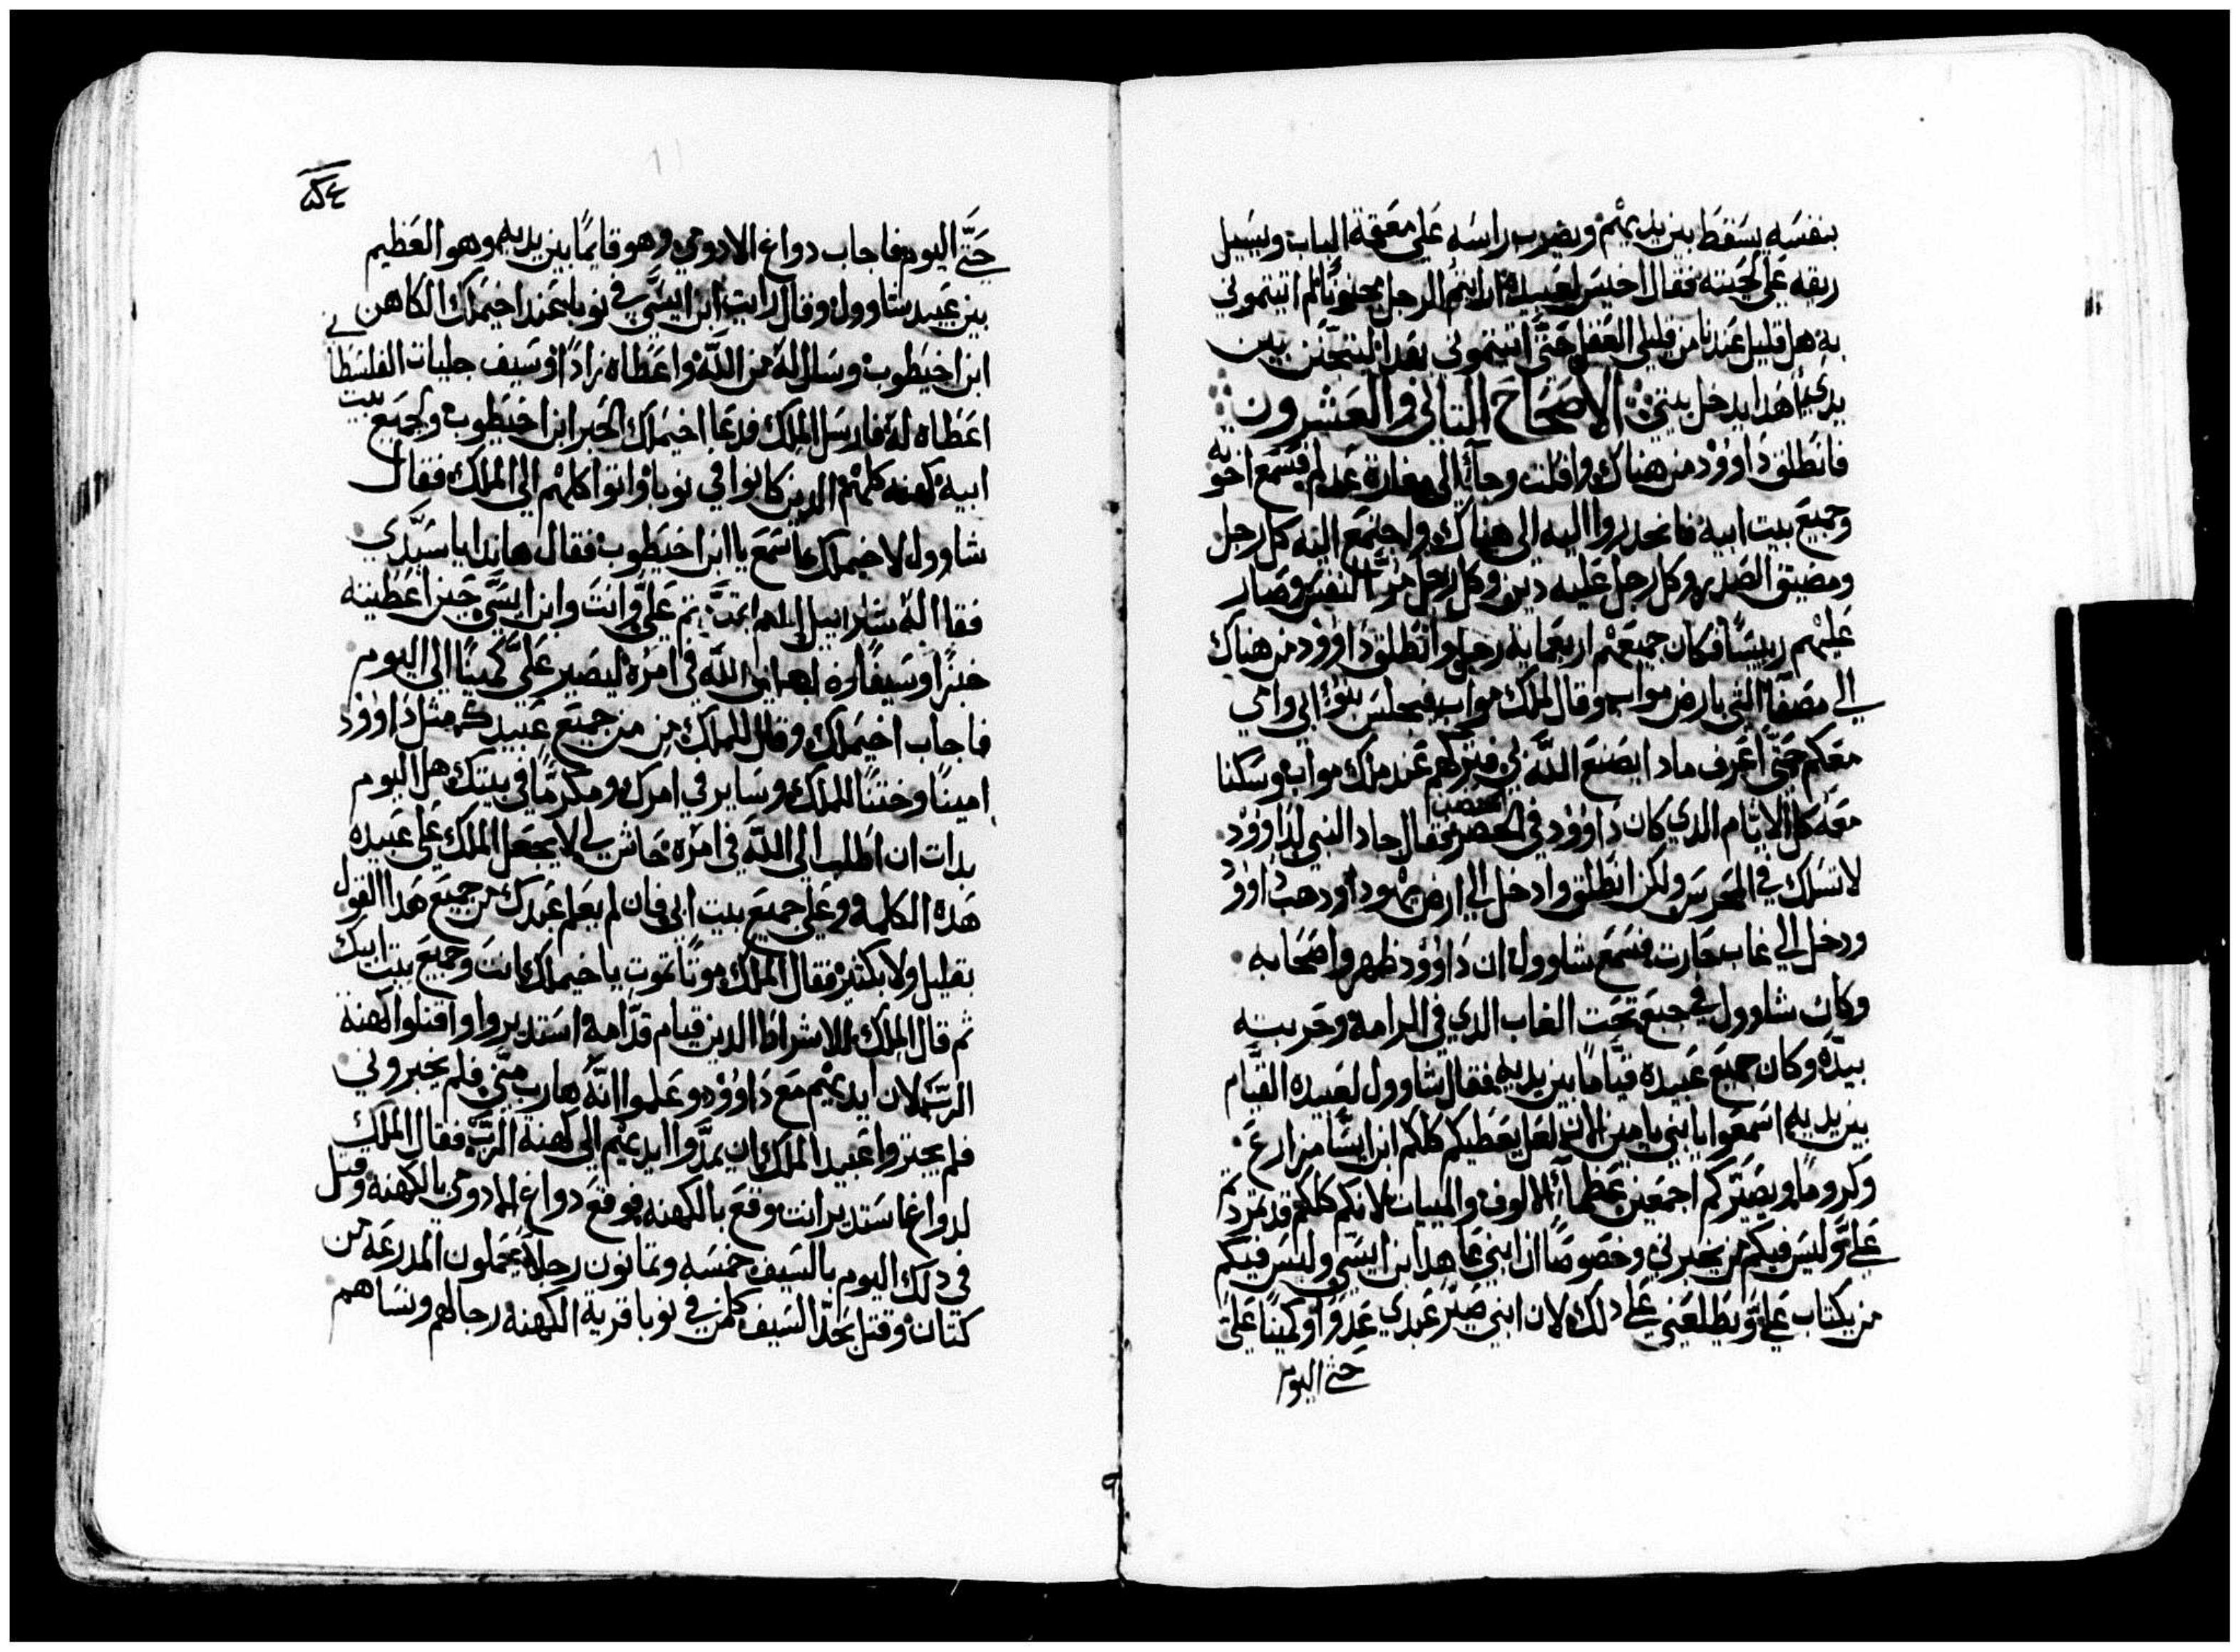 بنفسه يسقط بين يديهم ويضرب راسه على معقمة الباب ويسيل
ريقه على لحيته فقال اخيس لعبيده ارايتم الرجل مجنونا لم اتيتموني
به هل قليل عندنا من قليلى العقل حتى اتيتموني بهدا ليتجنن بين
يدي اهدا يدخل بيتي الاصحاح التاني والعشرون
فانطلق داوود من هناك وافلت وجا الى مغارة عدلم فسمع اخوته
وجميع بيت ابيه فانحدروا اليه الى هناك واجتمع اليه كل رجل
ومضيق الصدر وكل رجل عليه دين وكل رجل مر النفس وصار
عليهم رييسا فكان جميعهم اربعماية رجل وانطلق داوود من هناك
الى مصفا التي بارض مواب وقال لملك مواب فيجلس ابي وامي
معكم حتى اعرف مادا يصنع الله لي فتركهم عند ملك مواب وسكنا
معه كل الايام الدي كان داوود في الحصن فقال جاد النبي لداوود
لا تسلك في المحرس ولكن انطلق وادخل الى ارض يهودا ودهب داوود
ودخل الى غاب حارت فسمع شاوول ان داوود ظهر واصحابه
وكان شاوول في جبع تحت الغاب الدي في الرامة وحربته
بيده وكان جميع عبيده قياما بين يديه فقال شاوول لعبيده القيام
بين يديه اسمعوا يا بني يامين الان لعل يعطيكم كلكم ابن ايسا مزارع
وكروما ويصيركم اجمعين عظما الالوف والمييات لانكم كلكم قد تمردتم
علي وليس فيكم من يخبرني وخصوصا ان ابني عاهد ابن ايسي وليس فيكم
من يكتاب علي ويطلعني على دلك لان ابني صير عبدي عدوا وكمينا علي
حتى اليوم
٥٤
حتى اليوم فاجاب دواغ الادومي وهو قايما بين يديه وهو العظيم
بين عبيد شاوول وقال رايت ابن ايسي في نوبا عند اخيملك الكاهن
ابن اخيطوب وسال له من الله واعطاه زادا وسيف جليات الفلسطاني
اعطاه له فارسل الملك فدعا اخيملك الحبر ابن اخيطوب ولجميع بيت
ابيه كهنه كلهم الدين كانوا في نوبا واتوا كلهم الى الملك فقال
شاوول لاخيملك اسمع يا ابن اخيطوب فقال هاندا يا سيدي
فقال له شاوول لم تمردتم علي وانت وابن ايسي حين اعطيته
خبزا وسيفا الله في امره ليصير علي كمينا الى اليوم
فاجاب اخيملك وقال للملك من من جميع عبيدك مثل داوود
امينا وختنا للملك وساير في امرك ومكرما في بيتك هل اليوم
بدات ان اطلب الى الله في امره حاش لي لا يجعل الملك على عبيده
هده الكلمة وعلى جميع بيت ابي فان لم يعلم عبدك من جميع هدا القول
بقليل ولا بكتير فقال الملك موتا تموت يا خيملك انت وجميع بيت ابيك
تم قال الملك للاشراط الدين قيام قدامه استديروا واقتلوا كهنة
الرب لان ايديهم مع داوود وعلموا انه هارب مني فلم يخبروني
فلم يجتروا عبيد الملك ان يمدوا ايديهم الى كهنة الرب فقال الملك
لدواغ استدير انت وقع بالكهنه فوقع دواغ الادومي بالكهنه وقتل
في دلك اليوم بالسيف خمسه وتمانون رجلا يحملون المدرعة من
كتان وقتل بحد السيف كلمن في نوبا قرية الكهنه رجالهم ونساهم